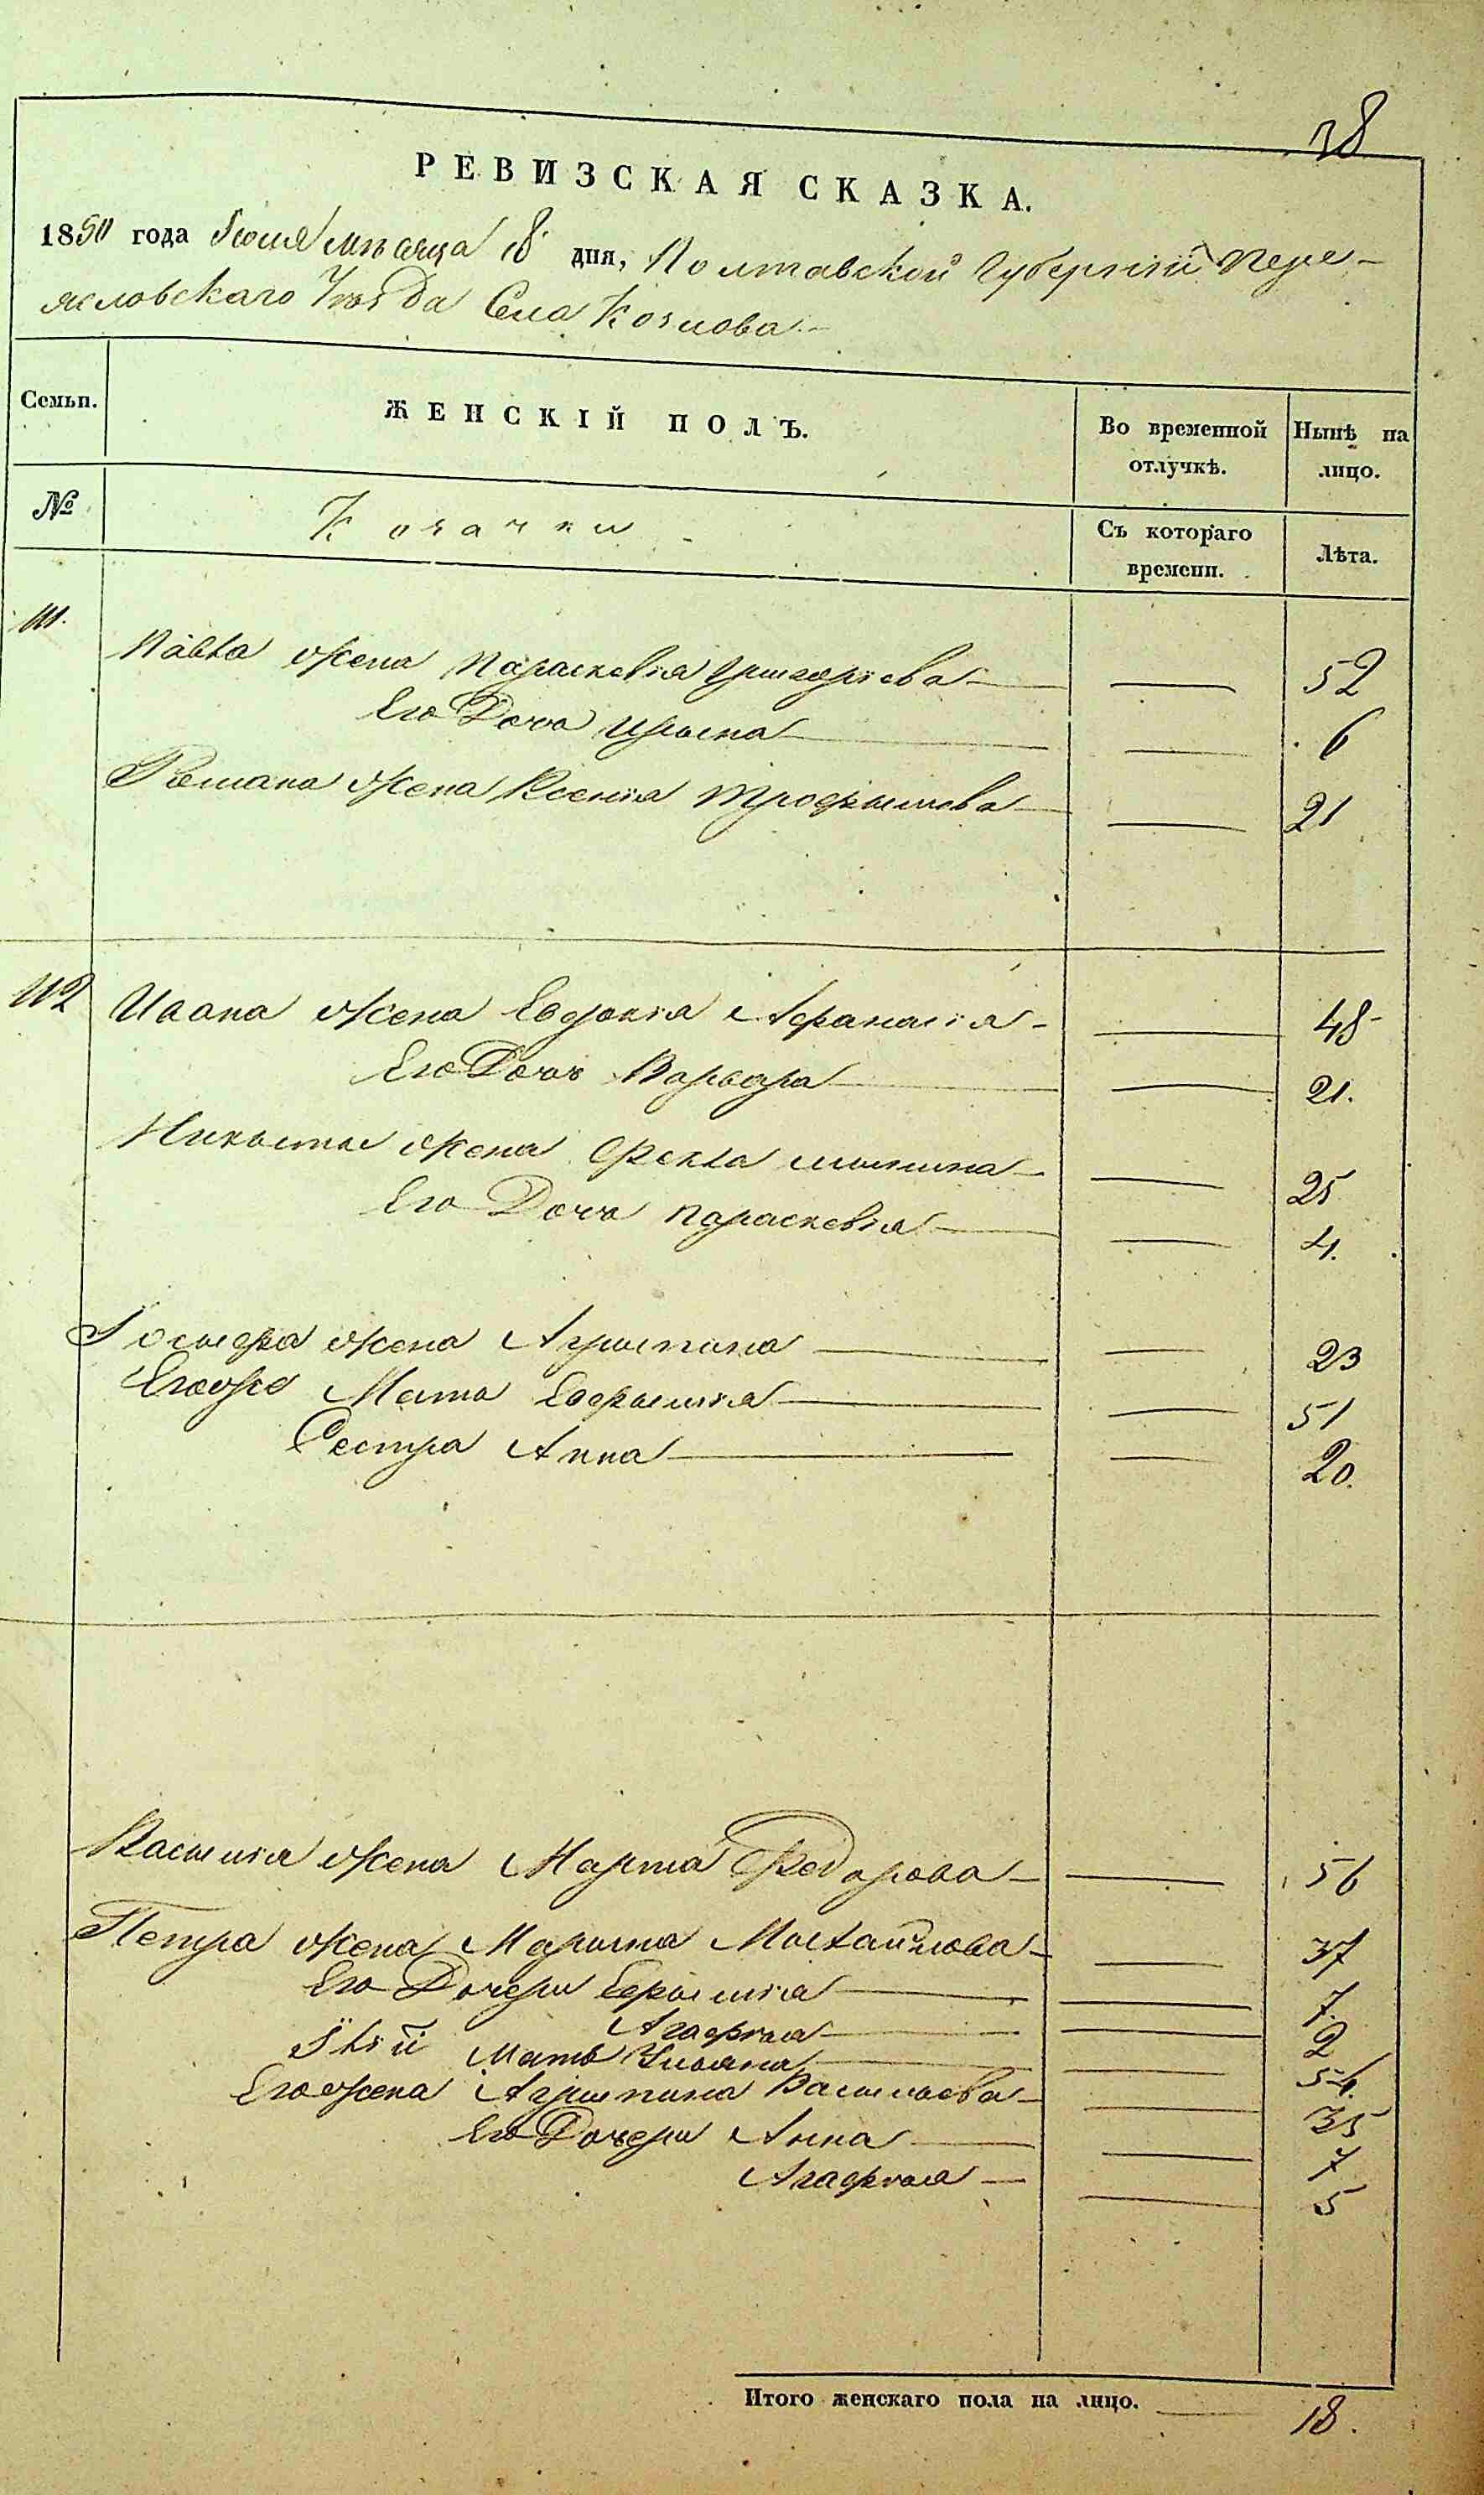 38
РЕВИЗСКАЯ СКАЗКА.
1850 года Іюля мѣсяца 18 дня, Полтавской Губерніи Пере-
ясловскаго Уѣзда Села Козлова.
Семьи.
ЖЕНСКІЙ ПОЛЪ.
Во временной отлучкѣ.
Нынѣ на лицо.
№
Козачки
Съ котораго времени.
Лѣта.
111.
Павла жена Параскевія Григоріева — 52
Его Дочь Ирина — 6
Романа жена Ксенія Трофимова — 21
112 Ивана жена Евдокія Афанасія — 48
Его Дочь Варвара — 21.
Никиты жена Фекла — 25
Его Дочь Параскевія — 4.
Іосифа жена Агрипина — 23
Егоже Мать Евфимія — 51
Сестра Анна — 20.
Василія жена Марта Федорова — 56
Петра жена Марина Михайлова — 37
Его Дочери Ефимія — 7.
Агафія — 2
Мать Ульяна — 54.
Его жена Агрипина Васильева — 35
Его Дочери Анна — 7
Агафія — 5
Итого женскаго пола на лицо. — 18.